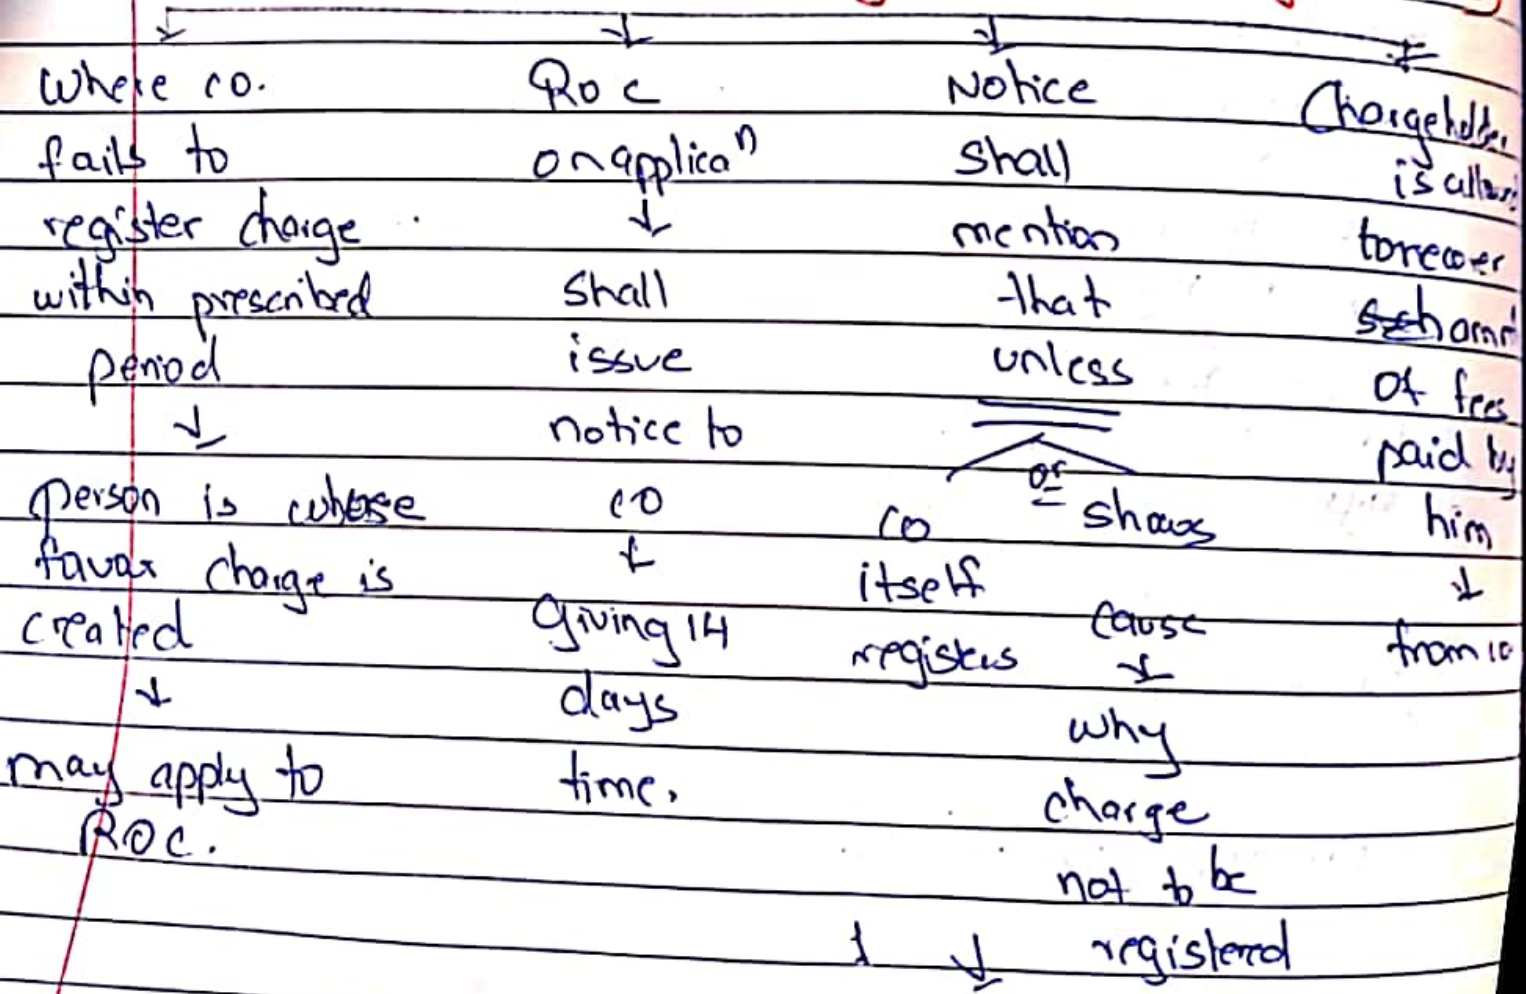 Where co.
fails to
register charge
within prescribed
period
person is whose
favor charge is
created
may apply to
ROC.
ROC
on applicaⁿ
shall
issue
notice to
co
giving 14
days
time.
Notice
shall
mention
that
unless
or
co
itself
registers
shows
cause
why
charge
not to be
registered
Chargeholder
is allow
to recover
amt
of fees
paid by
him
from co